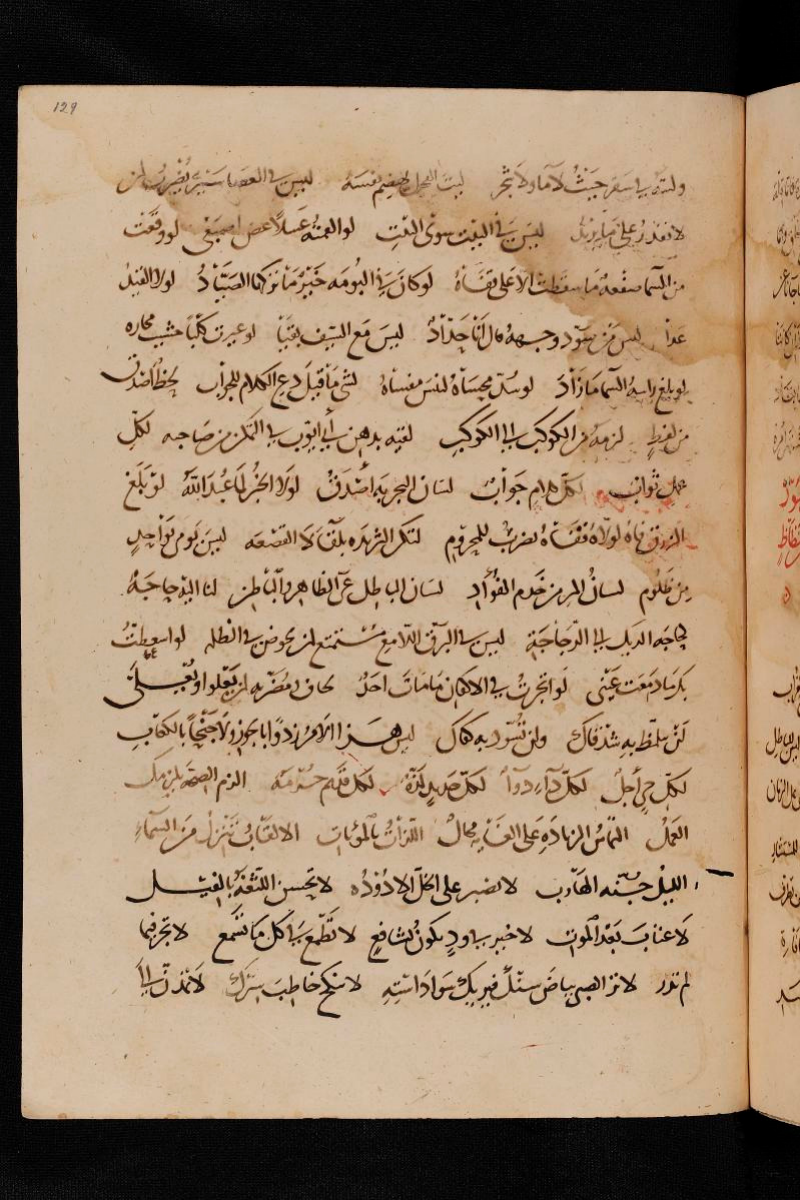 129
ولته في سقر حيث لا ما ولا شجر ليت الفجل يهضم نفسه ليس في العصا سير يضرب لمن
لا يقدر على ليس في البيت سوى البيت لو القمته عسلا عض اصبعي لو وقعت
من السما صفعه ما سقطت الا على قفاه لو كان في البومه خير ما تركها الصياد لولا القيد
عدا ليس من سود وجهه قال انا حداد ليس مع السيف بقيا لو عيرت كلبا خشيت محاره
لو بلغ راسه السما ما زاد لو سد محساه لنبس مفساه لشي ما قيل دع الكلام للجواب لحظ اصدق
من لفظ لزمه من الكوكب الى الكوكب لقيه بدهن ابي ايوب في التمكن من صاحبه لكل
عمل ثواب لكل كلام جواب لسان التجربه اصدق لولا الخبز لما عبد الله لو بلغ
الرزق فاه لولاه قفاه يضرب للمحروم لتكن الثريده بلقا لا القصعه ليس يومي بواحد
من ظلوم لسان المر من خدم الفواد لسان الباطل عن الظاهر والباطن لنا اليه حاجه
كحاجه الديك الى الدجاجه ليس في البرق اللامع مستمتع لمن يخوض في الظلمه لو اسعطت
بك ما دمعت عيني لو اتجرت في الاكفان ما مات احد
لن يتلمظ به شدقاك ولن تسود به كفاك ليس هذا الامر زورا
لكل حي اجل لكل داء دوا لكل جديد لذه لكل قديم حرمه الزم الصحه يلزمك
العمل التماس الزياده على الغايه محال اللذات بالمؤنات الالقاب تنزل من السماء
الليل جنه الهارب لا يصبر على الخل الا دوده لا تحسن الثقه بالفيل
لا عتاب بعد الموت لا خير في ود يكون بشافع لا تطمع في كل ما تسمع لا تجر فيما
لم تدر لا تر الصبي بياض سنك فيريك سواد استه لا تنكح خاطب سرك لا تمدن الى